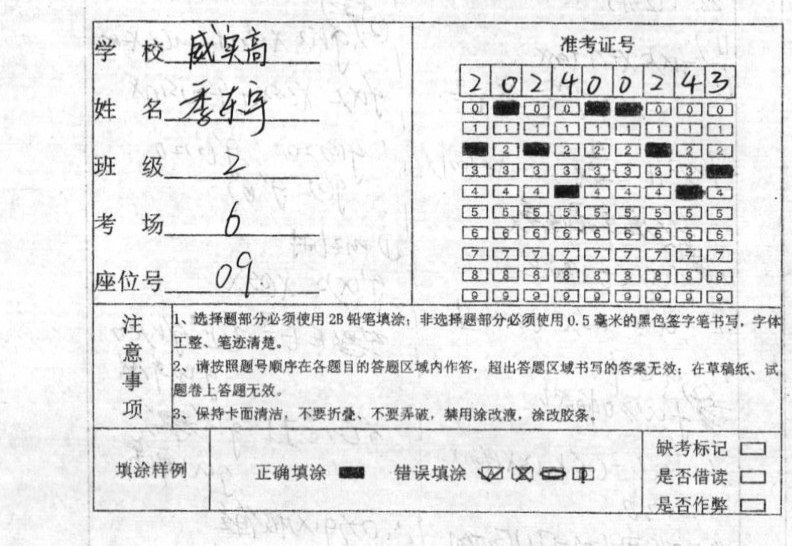 学 校 威实高
姓 名 季东宇
班 级 2
考 场 6
座位号 09
准考证号
2 0 2 4 0 0 2 4 3
0 0 0 0 0 0
1 1 1 1 1 1 1 1 1
2 2 2 2 2 2
3 3 3 3 3 3 3 3
4 4 4 4 4 4 4
5 5 5 5 5 5 5 5 5
6 6 6 6 6 6 6 6 6
7 7 7 7 7 7 7 7 7
8 8 8 8 8 8 8 8 8
9 9 9 9 9 9 9 9 9
注意事项
1、选择题部分必须使用 2B 铅笔填涂；非选择题部分必须使用 0.5 毫米的黑色签字笔书写，字体
工整、笔迹清楚。
2、请按照题号顺序在各题目的答题区域内作答，超出答题区域书写的答案无效；在草稿纸、试
题卷上答题无效。
3、保持卡面清洁，不要折叠、不要弄破，禁用涂改液，涂改胶条。
填涂样例 正确填涂 错误填涂
缺考标记
是否借读
是否作弊